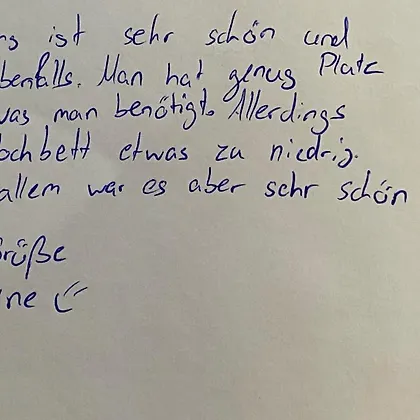 ist sehr schön und
benfalls. Man hat genug Platz
was man benötigt. Allerdings
ochbett etwas zu niedrig.
allem war es aber sehr schön
rüße
ne